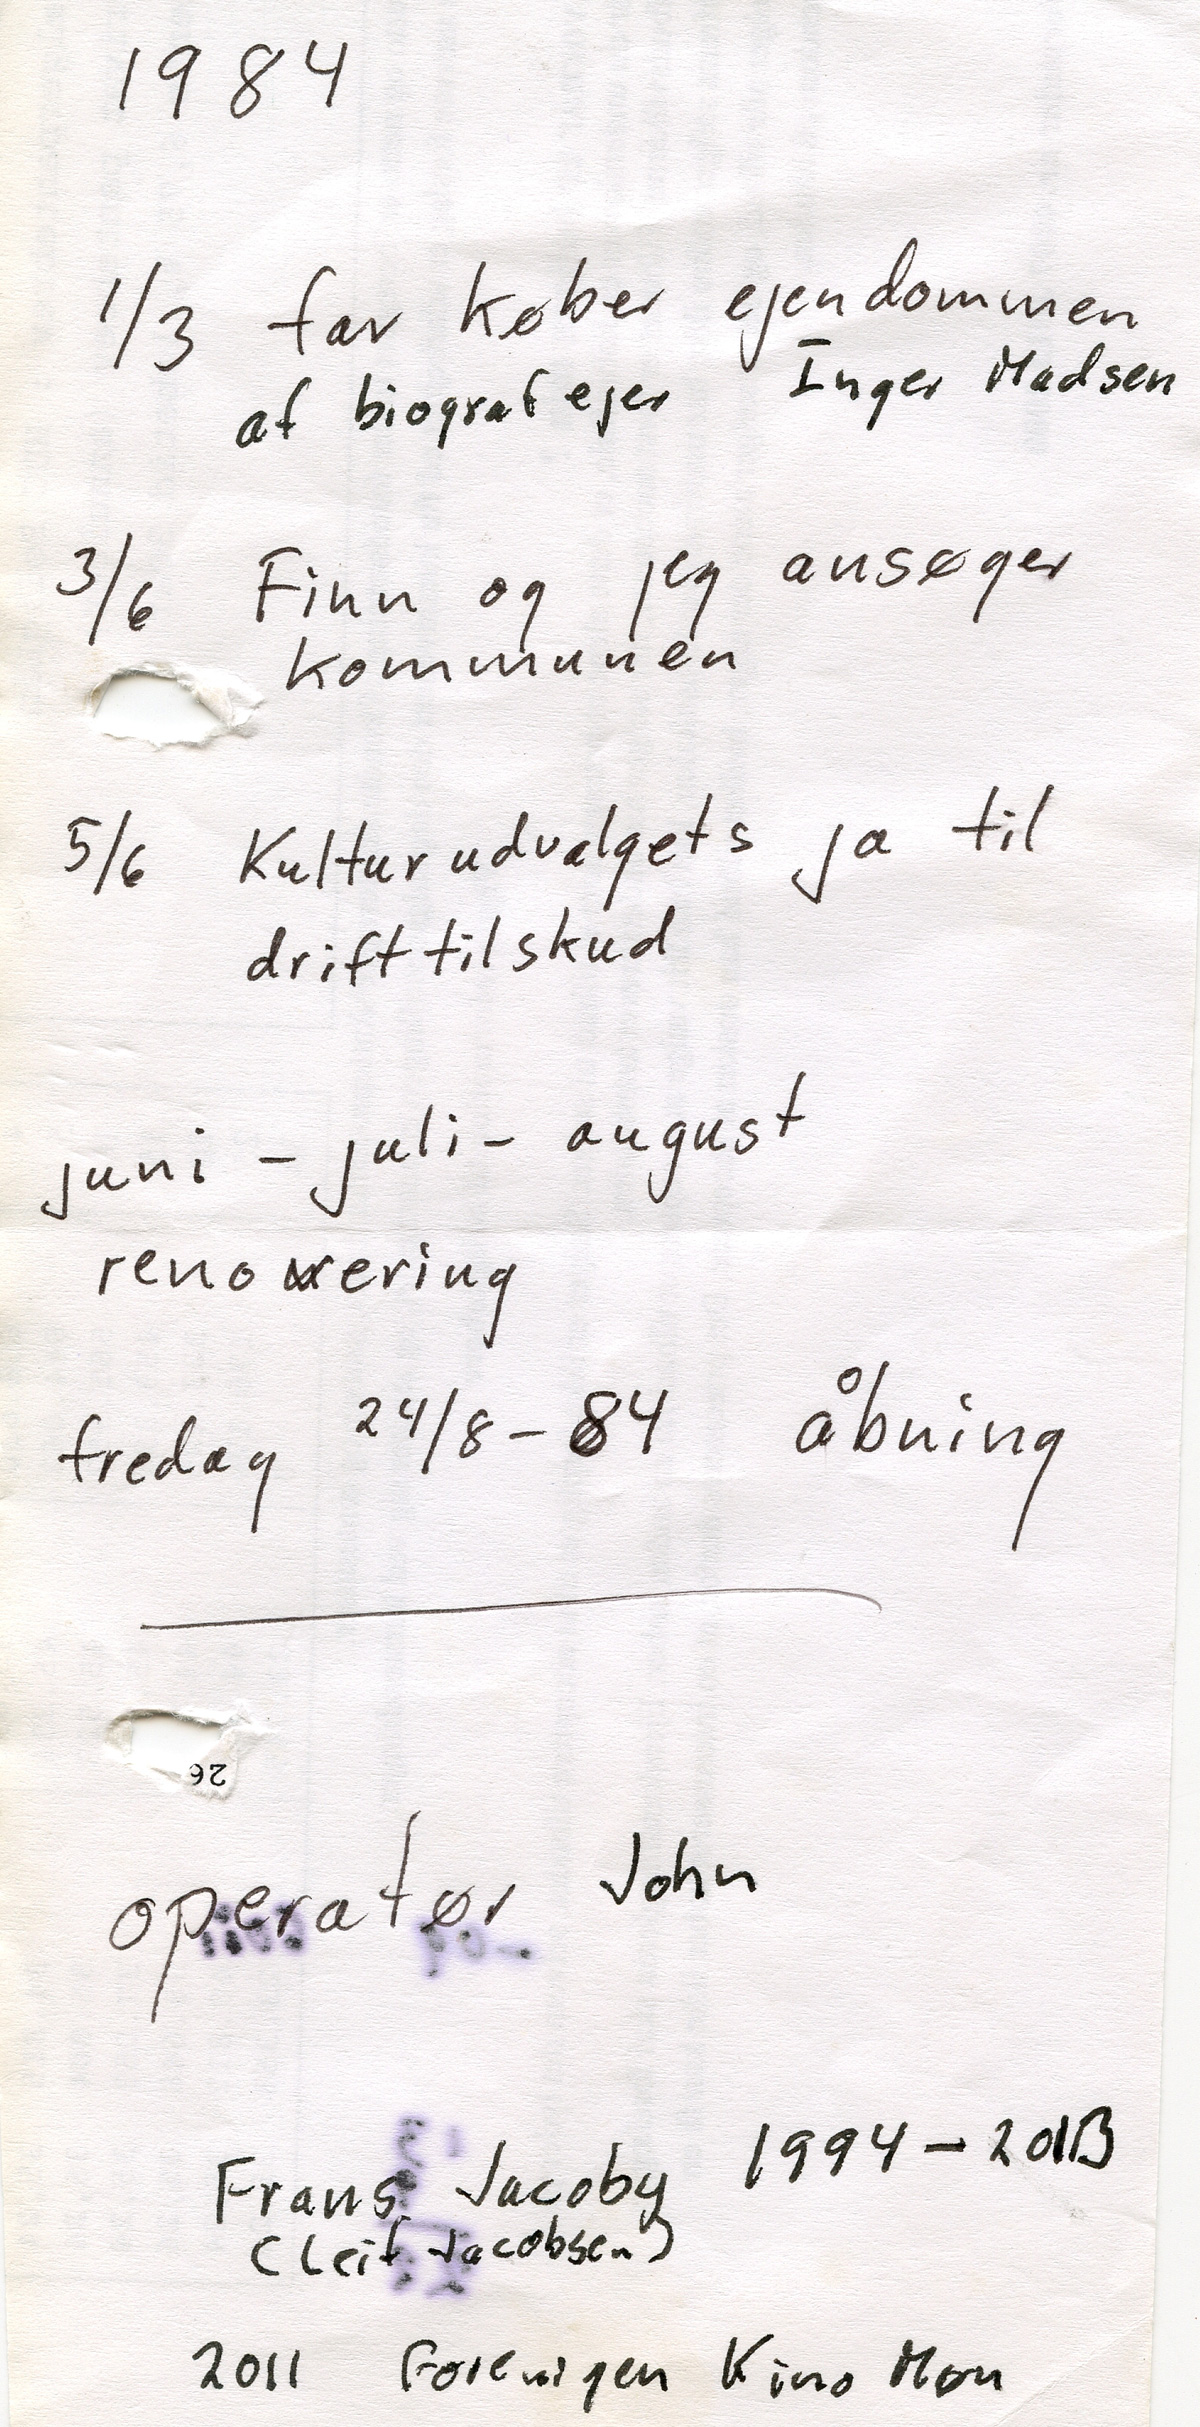 1984
1/3 far køber ejendommen
af biografejer Inger Madsen
3/6 Finn og jeg ansøger
kommunen
5/6 Kulturudvalgets ja til
drifttilskud
juni - juli - august
renovering
fredag 24/8 - 84 åbning
26
operatør John
Frans Jacoby 1994 - 2013
(Leif Jacobsen)
2011 Forenigen Kino Møn